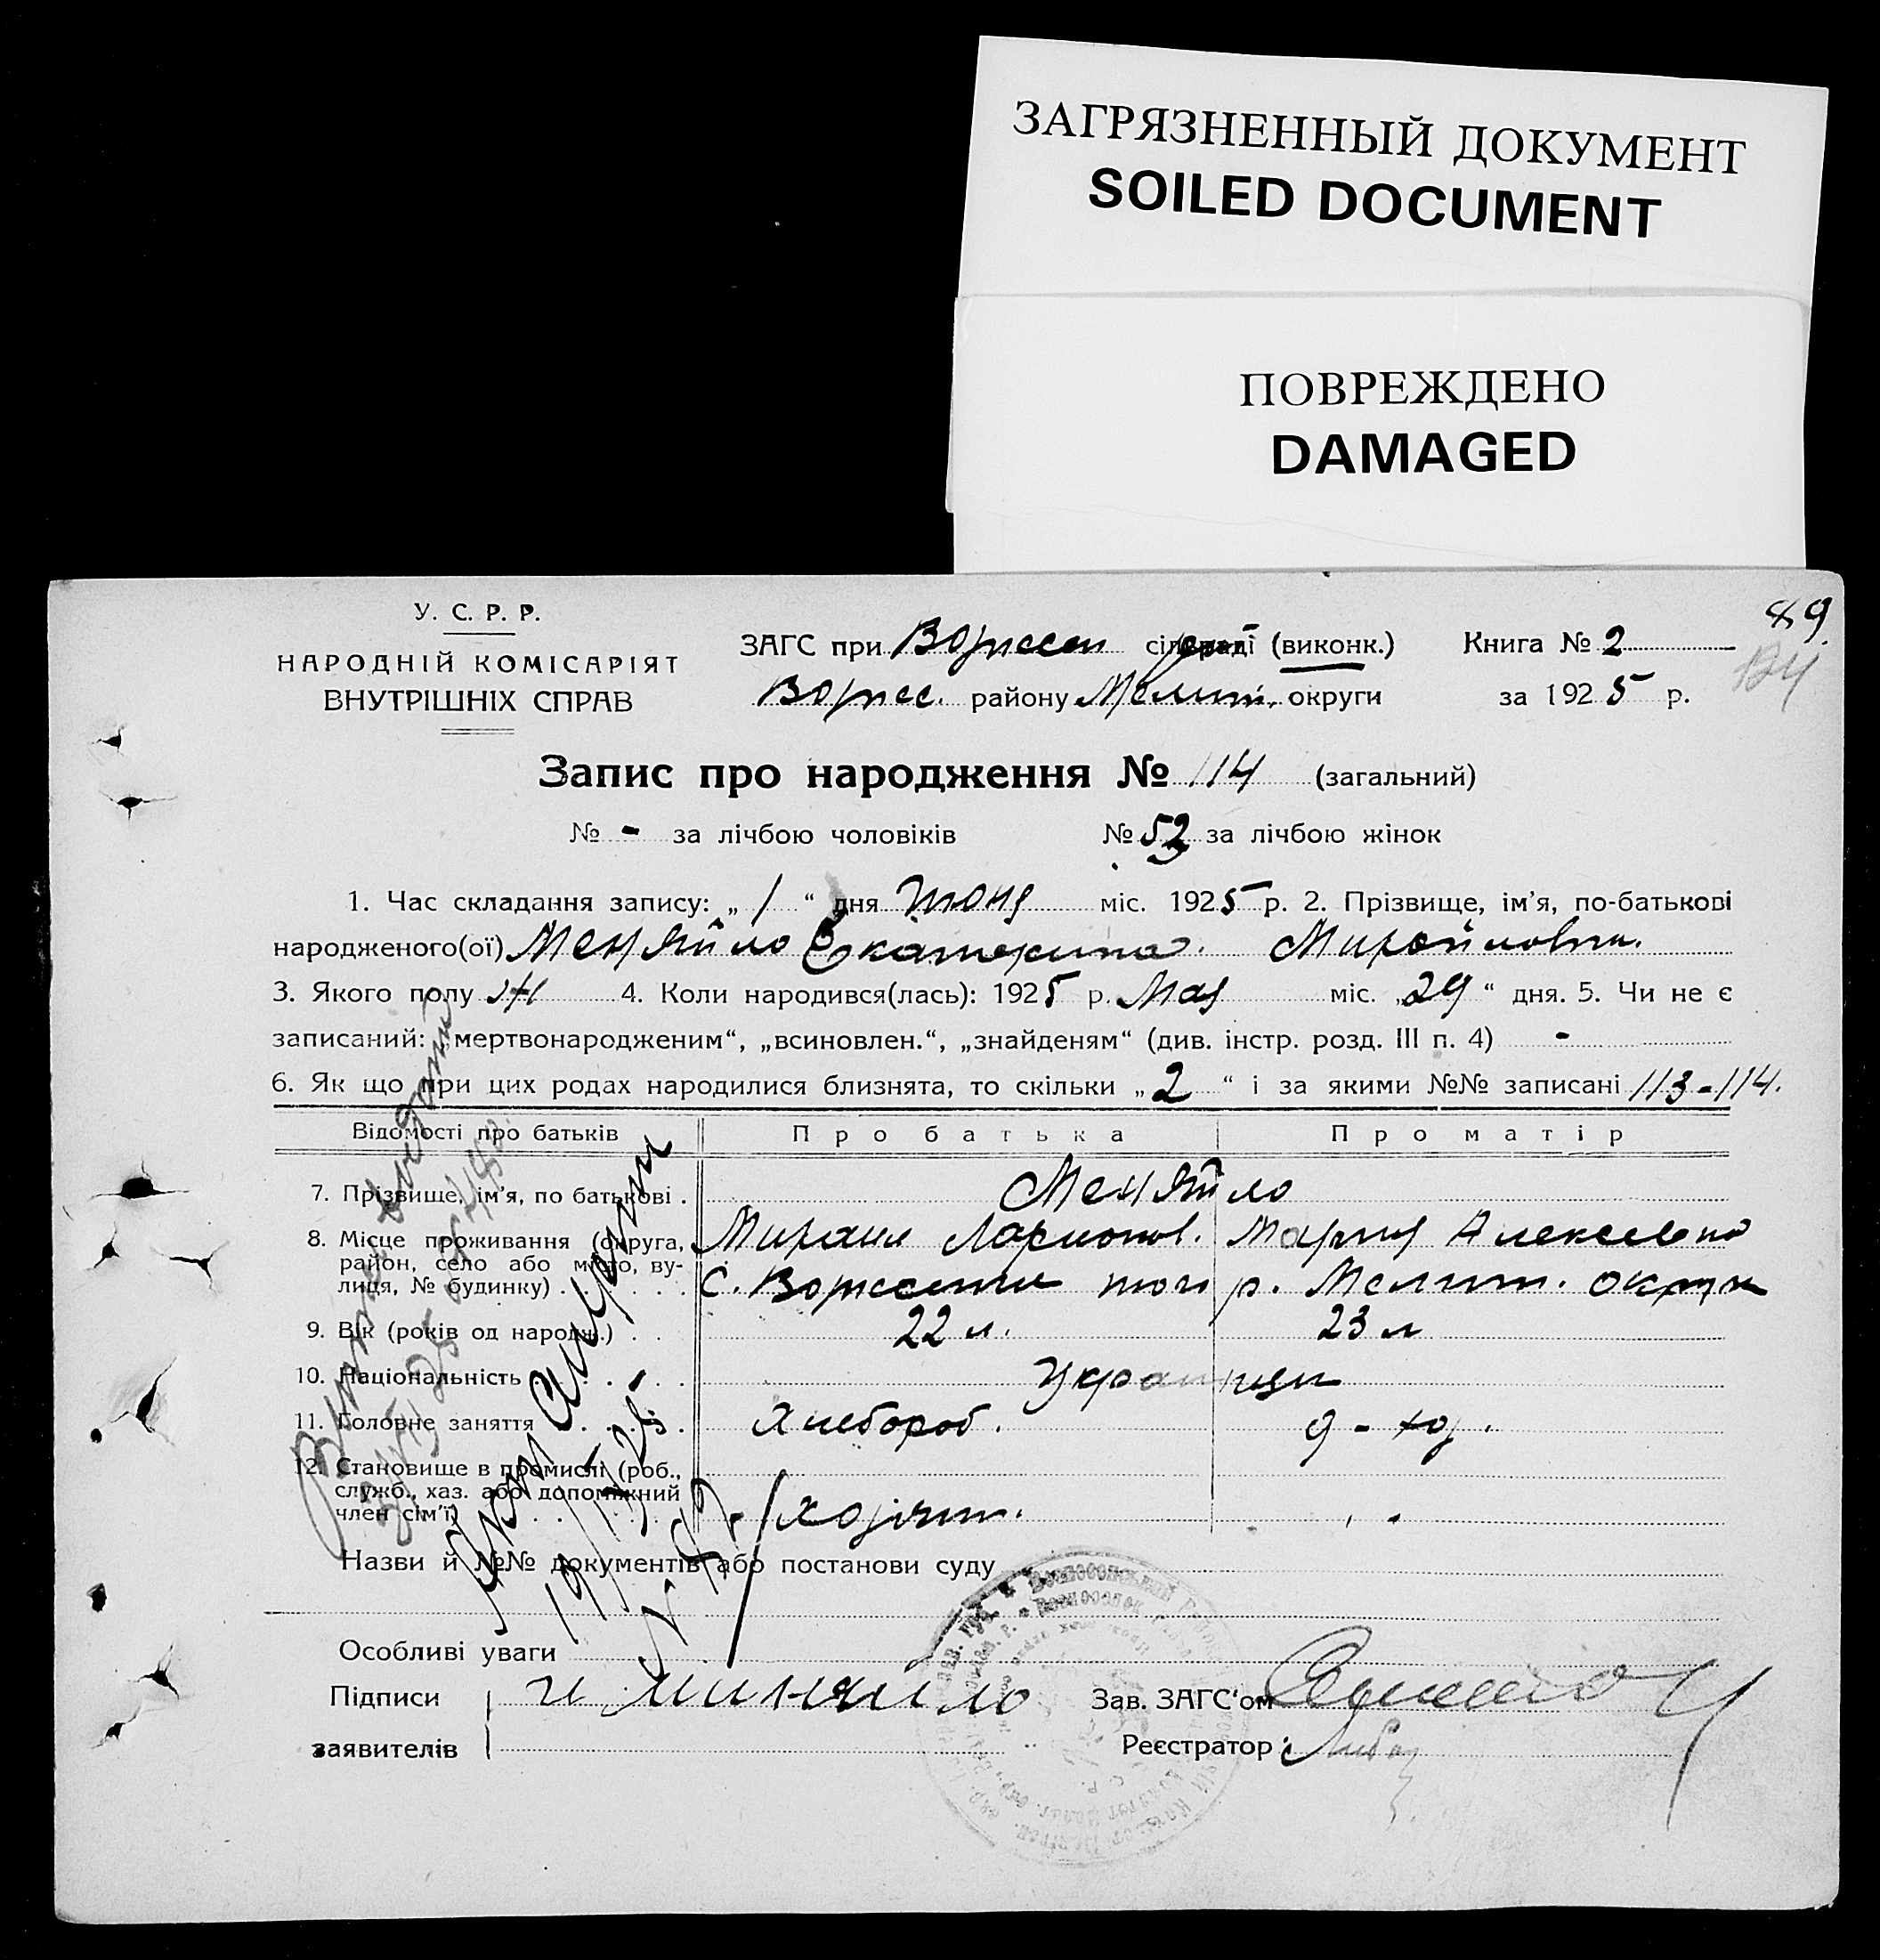 ЗАГРЯЗНЕННЫЙ ДОКУМЕНТ
SOILED DOCUMENT
ПОВРЕЖДЕНО
DAMAGED
89
У. С. Р. Р.
НАРОДНІЙ КОМІСАРІЯТ
ВНУТРІШНІХ СПРАВ
ЗАГС при сільраді (виконк.) Книга № 2
району Мелит. округи за 1925 р.
Запис про народження № 114 (загальний)
№ - за лічбою чоловіків № 53 за лічбою жінок
1. Час складання запису: „ 1 “ дня Июня міс. 1925 р. 2. Прізвище, ім’я, по-батькові
народженого(ої) Меняйло Екатерина Михайловна.
3. Якого полу ж 4. Коли народився(лась): 1925 р. Мая міс. „29“ дня. 5. Чи не є
записаний: „мертвонародженим“, „всиновлен.“, „знайденям“ (див. інстр. розд. III п. 4) -
6. Як що при цих родах народилися близнята, то скільки „2“ і за якими №№ записані 113-114.
Відомості про батьків Про батька Про матір
7. Прізвище, ім’я, по батькові . Меняйло
8. Місце проживання (округа, Михаил Ларионов. Мария Алексеевна
район, село або місто, ву-
лиця, № будинку) . . . . . . С. того р. Мелит. округи
9. Вік (років од народж.) . . 22 л. 23 л
10. Національність . . . . Украинцы
11. Головне заняття . . . . Хлебороб. д-хоз.
12. Становище в промислі (роб.,
служб., хаз. або допоміжний
член сім’ї)
Назви й №№ документів або постанови суду
Особливі уваги
Підписи Зав. ЗАГС‘ом
заявителів Реєстратор